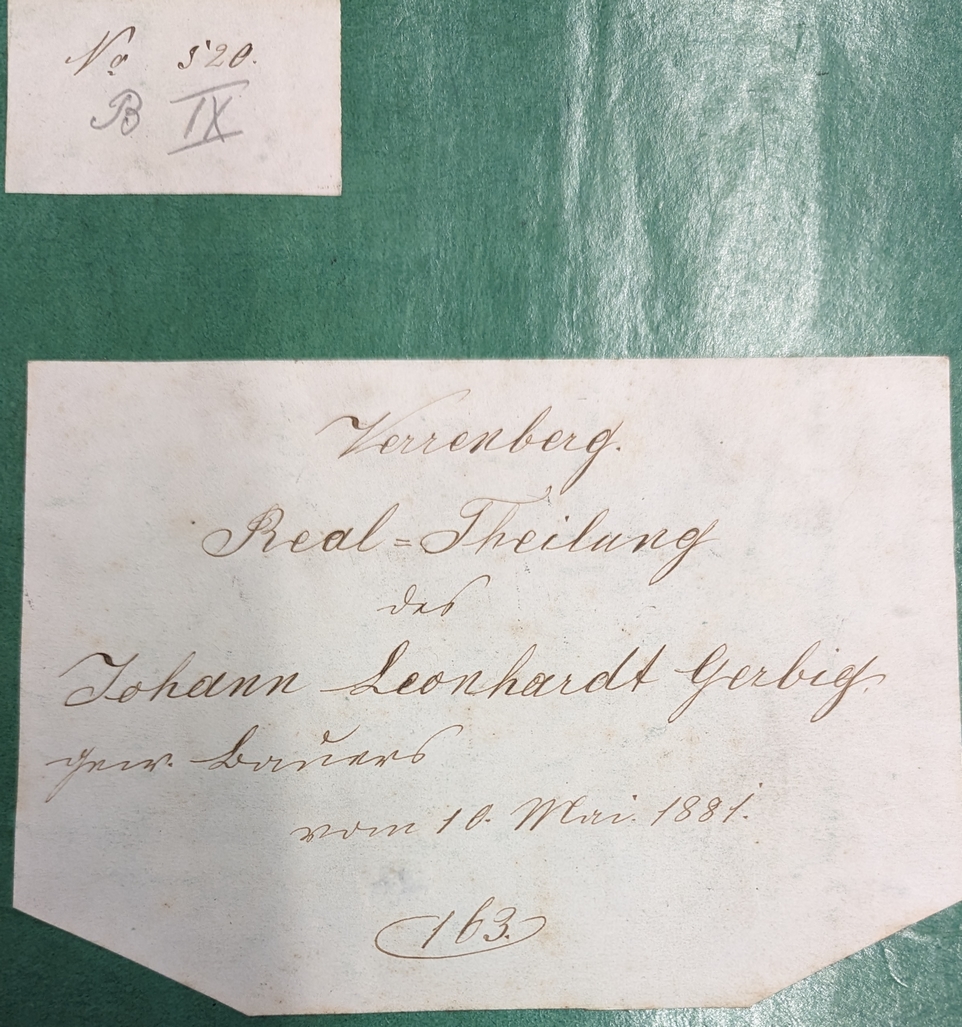 No 520.
B IX
Verrenberg.
Real=Theilung
des
Johann Leonhardt Gerbig,
gew. Bauers
vom 10. Mai. 1881.
163.